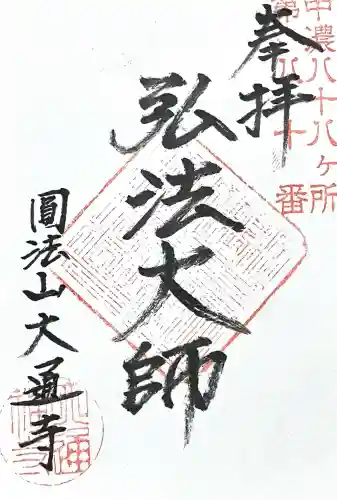 中濃八十八ヶ所
第八十番
奉拝
弘法大師
圓法山大通寺